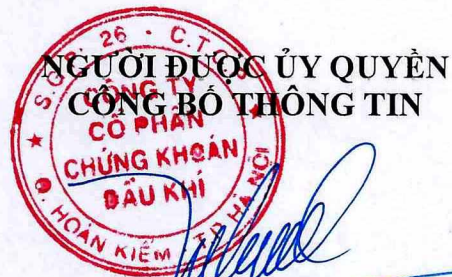 NGƯỜI ĐƯỢC ỦY QUYỀN
CÔNG BỐ THÔNG TIN
CÔNG TY
CỔ PHẦN
CHỨNG KHOÁN
DẦU KHÍ
Q. HOÀN KIẾM - TP HÀ NỘI